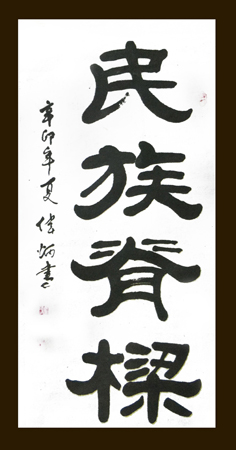 民族脊樑
辛卯年夏 伟炳書